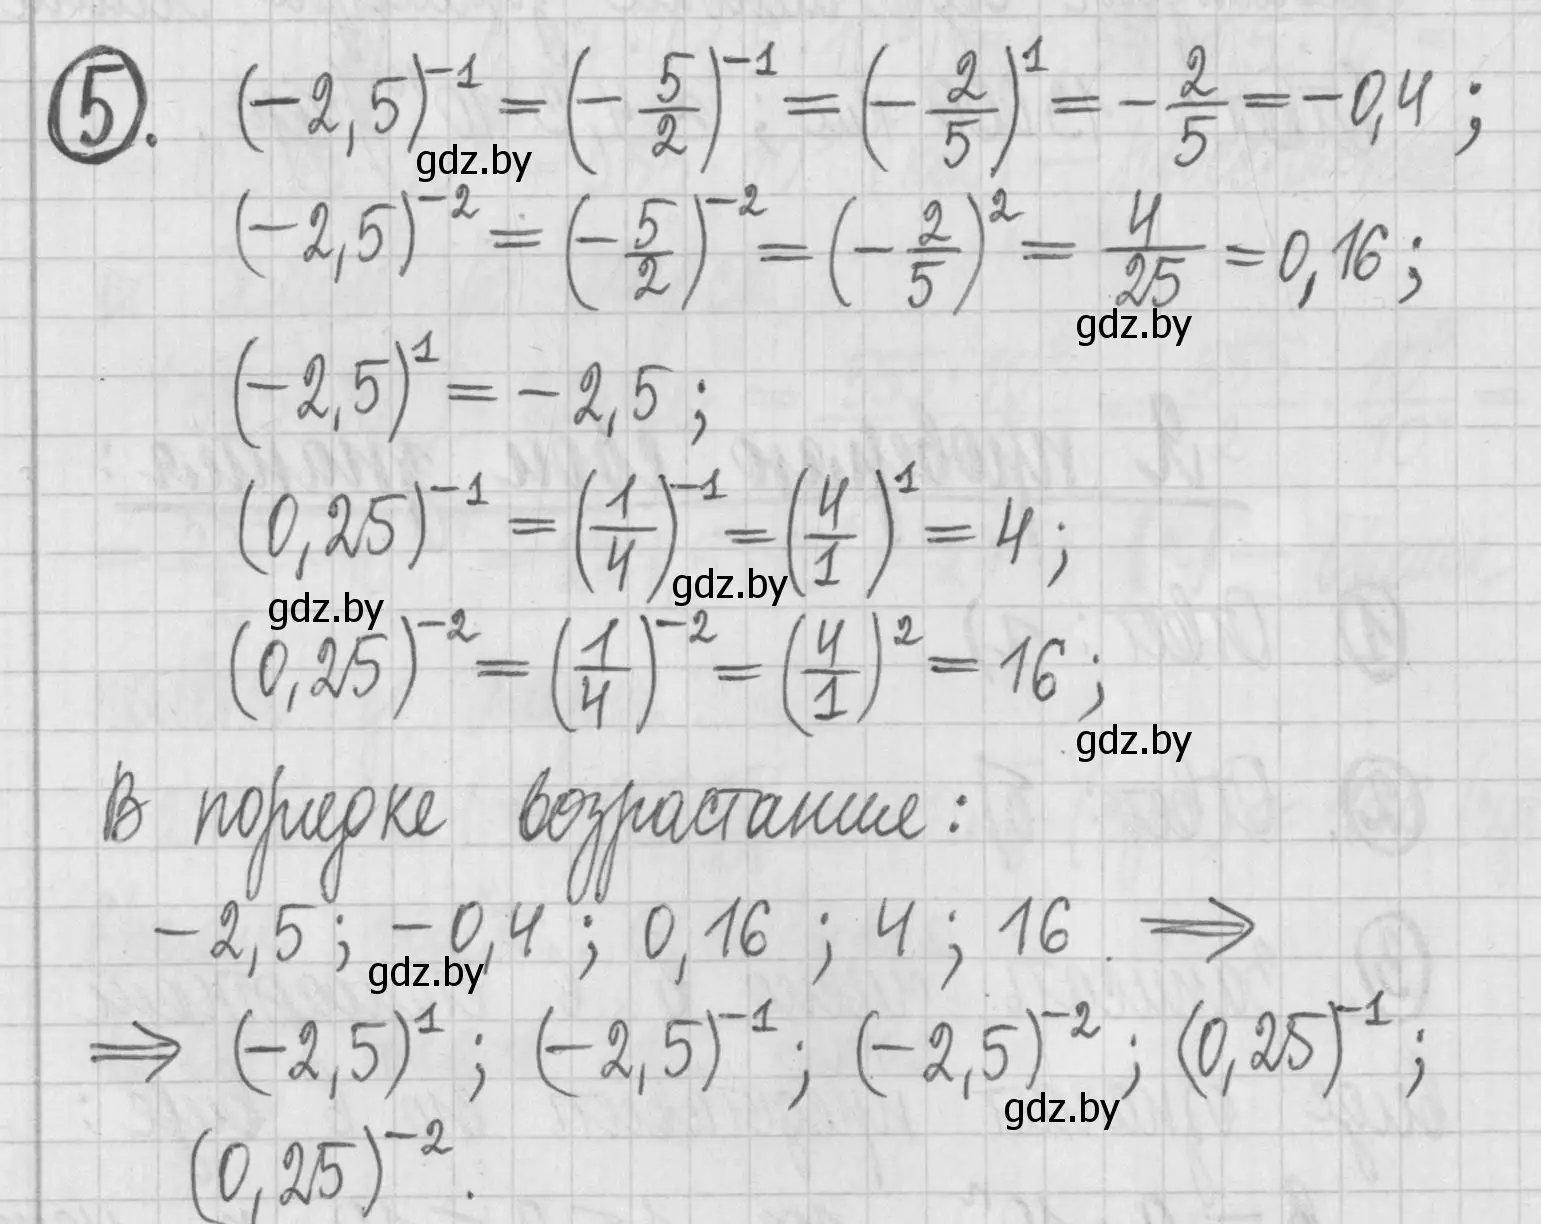 5. (-2,5)^{-1} = (-\frac{5}{2})^{-1} = (-\frac{2}{5})^{1} = -\frac{2}{5} = -0,4 ;
gdz.by
(-2,5)^{-2} = (-\frac{5}{2})^{-2} = (-\frac{2}{5})^{2} = \frac{4}{25} = 0,16 ;
gdz.by
(-2,5)^{1} = -2,5 ;
(0,25)^{-1} = (\frac{1}{4})^{-1} = (\frac{4}{1})^{1} = 4 ;
gdz.by gdz.by
(0,25)^{-2} = (\frac{1}{4})^{-2} = (\frac{4}{1})^{2} = 16 ;
gdz.by
В порядке возрастание:
-2,5 ; -0,4 ; 0,16 ; 4 ; 16 . ⟹
gdz.by
⟹ (-2,5)^{1} ; (-2,5)^{-1} ; (-2,5)^{-2} ; (0,25)^{-1} ;
gdz.by
(0,25)^{-2} .